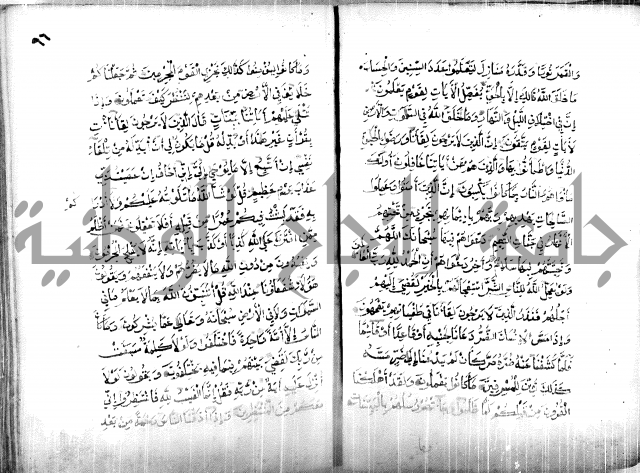 والقمر نورا وقدره منازل لتعلموا عدد السنين والحساب
ما خلق الله ذلك الا بالحق يفصل الايات لقوم يعلمون
ان في اختلاف الليل والنهار وما خلق الله في السموات والارض
لايات لقوم يتقون ان الذين لا يرجون لقاءنا ورضوا بالحيوة
الدنيا واطمأنوا بها والذين هم عن اياتنا غافلون اولئك
مأواهم النار بما كانوا يكسبون ان الذين امنوا وعملوا
الصالحات يهديهم ربهم بايمانهم تجري من تحتهم
الانهار في جنات النعيم دعواهم فيها سبحانك اللهم
وتحيتهم فيها سلام واخر دعواهم ان الحمد لله رب العالمين
ولو يعجل الله للناس الشر استعجالهم بالخير لقضي اليهم
اجلهم فنذر الذين لا يرجون لقاءنا في طغيانهم يعمهون
واذا مس الانسان الضر دعانا لجنبه او قاعدا او قائما
فلما كشفنا عنه ضره مر كان لم يدعنا الى ضر مسه
كذلك زين للمسرفين ما كانوا يعملون ولقد اهلكنا
القرون من قبلكم لما ظلموا وجاءتهم رسلهم بالبينات
وما كانوا ليؤمنوا كذلك نجزي القوم المجرمين ثم جعلناكم
خلائف في الارض من بعدهم لننظر كيف تعملون واذا
تتلى عليهم اياتنا بينات قال الذين لا يرجون لقاءنا ائت
بقرآن غير هذا او بدله قل ما يكون لي ان ابدله من تلقاء
نفسي ان اتبع الا ما يوحى الي اني اخاف ان عصيت ربي
عذاب يوم عظيم قل لو شاء الله ما تلوته عليكم ولا ادراكم
به فقد لبثت فيكم عمرا من قبله افلا تعقلون فمن اظلم
ممن افترى على الله كذبا او كذب باياته انه لا يفلح المجرمون
ويعبدون من دون الله ما لا يضرهم ولا ينفعهم ويقولون
هؤلاء شفعاؤنا عند الله قل اتنبئون الله بما لا يعلم في
السموات ولا في الارض سبحانه وتعالى عما يشركون وما كان
الناس الا امة واحدة فاختلفوا ولولا كلمة سبقت
من ربك لقضي بينهم فيما فيه يختلفون ويقولون لولا
انزل عليه اية من ربه فقل انما الغيب لله فانتظروا اني
معكم من المنتظرين واذا اذقنا الناس رحمة من بعد
جامعة النجاح الوطنية